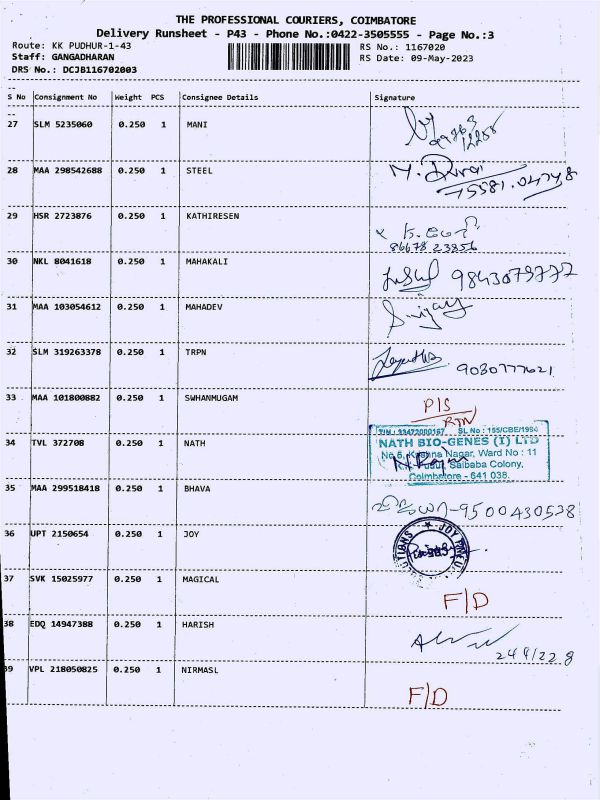 THE PROFESSIONAL COURIERS, COIMBATORE
Delivery Runsheet - P43 - Phone No.:0422-3505555 - Page No.:3
Route: KK PUDHUR-1-43 RS No.: 1167020
Staff: GANGADHARAN RS Date: 09-May-2023
DRS No.: DCJB116702003
S No Consignment No Weight PCS Consignee Details Signature
27 SLM 5235060 0.250 1 MANI
28 MAA 298542688 0.250 1 STEEL
29 HSR 2723876 0.250 1 KATHIRESEN
86678 23856
30 NKL 8041618 0.250 1 MAHAKALI 9843079777
31 MAA 103054612 0.250 1 MAHADEV
32 SLM 319263378 0.250 1 TRPN 9030777621
33 MAA 101800882 0.250 1 SWHANMUGAM P/S
RTN
TIN : 33472000167 SL No : 155/CBE/1994
34 TVL 372708 0.250 1 NATH NATH BIO-GENES (I) LTD
No 5, Krishna Nagar, Ward No : 11
K.K. Pudur, Saibaba Colony,
Coimbatore - 641 038.
35 MAA 299518418 0.250 1 BHAVA 9500430538
36 UPT 2150654 0.250 1 JOY
37 SVK 15025977 0.250 1 MAGICAL F/D
38 EDQ 14947388 0.250 1 HARISH
39 VPL 218050825 0.250 1 NIRMASL F/D